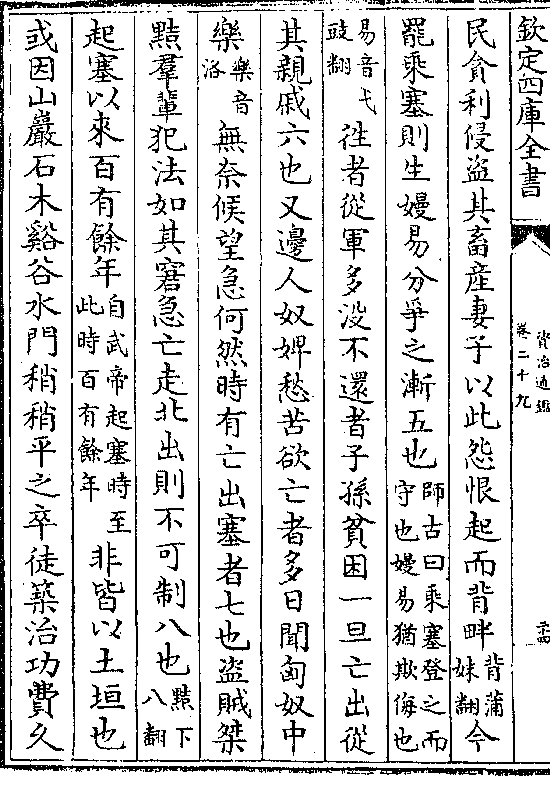 欽定四庫全書
資治通鑑
卷二十九
民貪利侵盗其畜産妻子以此怨恨起而背畔背蒲妹翻今
罷乘塞則生嫚易分爭之漸五也師古曰乘塞登之而守也嫚易猶欺侮也
易音弋豉翻徃者從軍多没不還者子孫貧困一旦亡出從
其親戚六也又邊人奴婢愁苦欲亡者多曰聞匈奴中
樂樂音洛無奈候望急何然時有亡出塞者七也盗賊桀
黠羣輩犯法如其窘急亡走北出則不可制八也黠下八翻
起塞以來百有餘年自武帝起塞時至此時百有餘年非皆以土垣也
或因山巖石木谿谷水門稍稍平之卒徒築治功費久